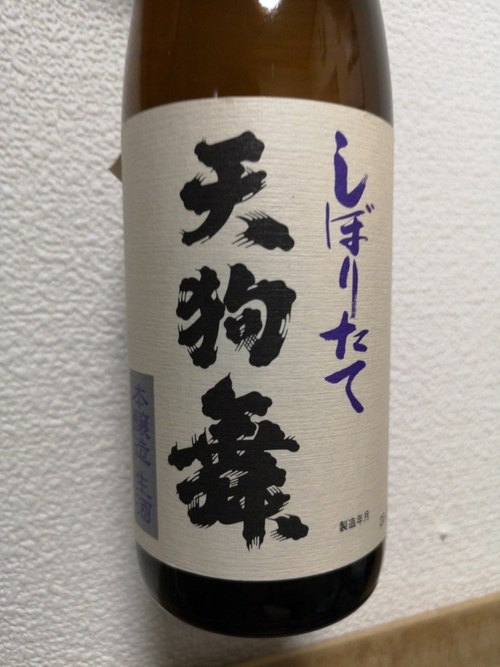 しぼりたて
天狗舞
本醸造 生酒
製造年月